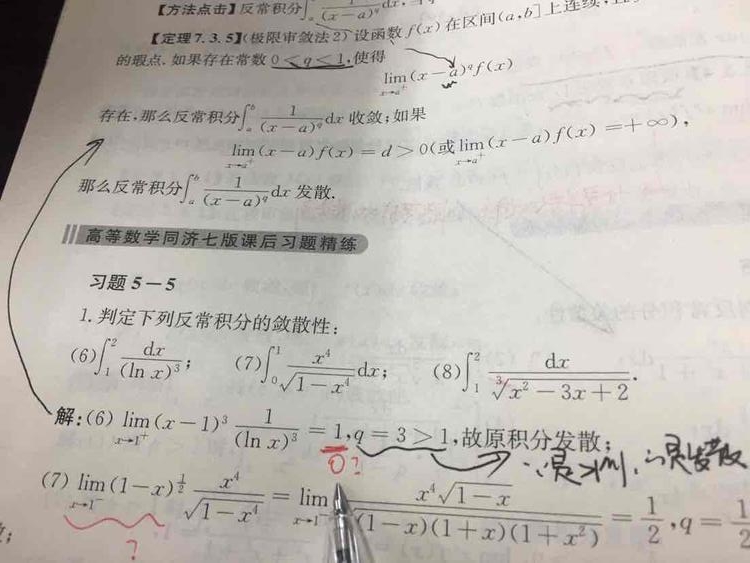 【方法点击】反常积分∫_a^b 1/(x-a)^q dx,当
【定理7.3.5】(极限审敛法2) 设函数 f(x) 在区间(a,b]上连续,
的瑕点.如果存在常数 0<q<1,使得
lim_{x→a⁺}(x-a)^q f(x)
存在,那么反常积分∫_a^b 1/(x-a)^q dx 收敛;如果
lim_{x→a⁺}(x-a)f(x)=d>0(或lim_{x→a⁺}(x-a)f(x)=+∞),
那么反常积分∫_a^b 1/(x-a)^q dx 发散.
高等数学同济七版课后习题精练
习题5-5
1.判定下列反常积分的敛散性:
(6)∫_1^2 dx/(ln x)³; (7)∫_0^1 x⁴/√(1-x⁴) dx; (8)∫_1^2 dx/∛(x²-3x+2).
解:(6) lim_{x→1⁺}(x-1)³ 1/(ln x)³ =1,q=3>1,故原积分发散;
0?
(7) lim_{x→1⁻}(1-x)^{1/2} x⁴/√(1-x⁴) = lim_{x→1⁻} x⁴√(1-x)/√((1-x)(1+x)(1+x²)) = 1/2,q=1/2
?